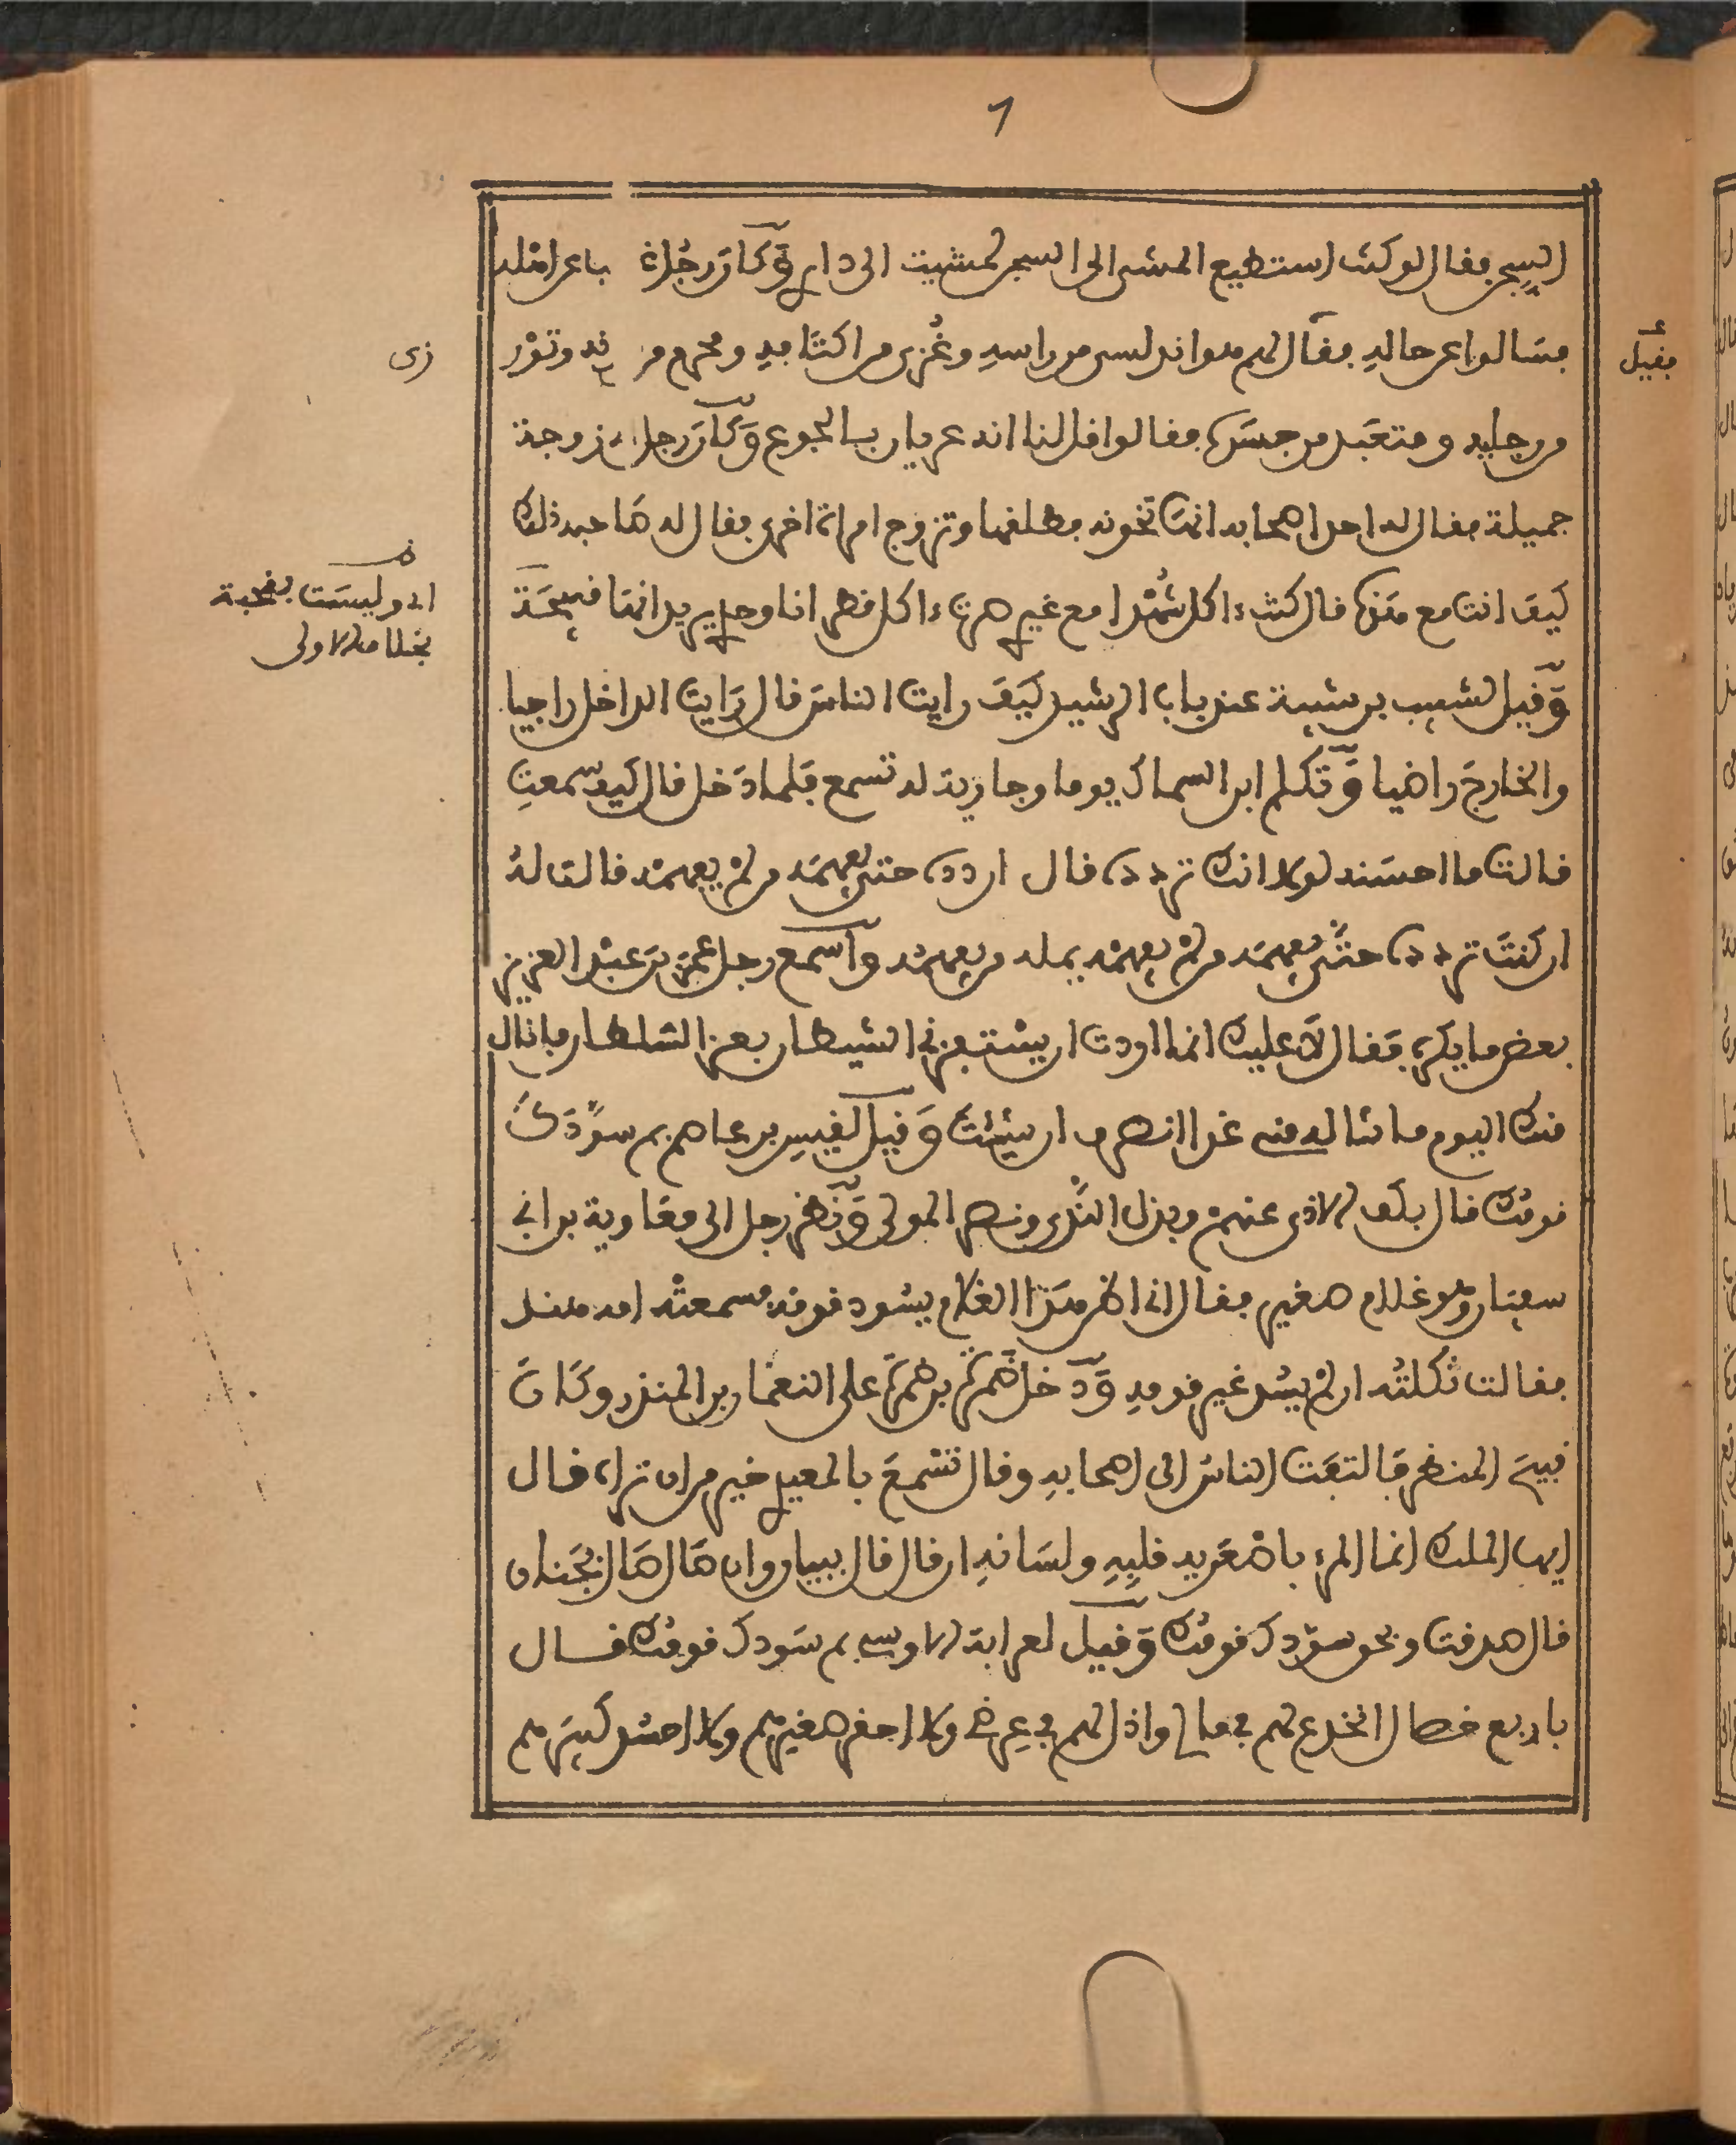 السجن فقال لو كنت استطيع المشي الى السجن لمشيت الى داري وَّكان رجلان باعرامله
فسالوا عن حاله فقال لهم هو اند لسي من راسه وغُزي من اكتافه ومحرم من وتوْر
زى
فقيل
من رجليه ومتعبد من جسَده فقالوا قل لنا انه عريان بالجوع وَّكان رجل زوجة
جميلة فقال له احد اصحابه انت تخونه فطلقها وتزوج امراة اخرى فقال له صاحبه ذلك
كيف انت مع هذه قال كنت ءاكل شُهْدا مع غيري صرت ءاكل قطرانا وحدي يريد انها قبيحَة
اى وليسَت بقحبة
بخلاف الاولى
وَّقيل لشبيب بن شيبة عند باب الرشيد كيَف رايت الناسَ قال رَايت الداخل راجيا
والخارجَ راضيا وَّتكلم ابن السماك يوما وجارية له تسمع فلما دَخل قال كيف سمعتِ
قالت ما احسَنه لولا انك تردده قال اردده حتى يفهمَه من لمْ يفهمْه قالت لهُ
ان كنتَ تردده حتَّى يفهمَه من لمْ يفهمْه يمله من يفهمْه وَّاسمع رجل عمَر بن عبْد العزيز
بعض ما يكره فَقال لا عليك انما اردت ان يستفزني الشيطان بعز السلطان فانال
منك اليوم ما تناله مني غدا انصرف ان شيئت وَّقيل لقيسِ بن عاصم بم سوَّدَكَ
قومُك قال بكف الاذى عنهمْ وبذل النَّدى ونصر المولى وَّنظر رجل الى معَاوية بن ابي
سفيان وهو غلام صغير فقال اني اظن هذا الغلام يسُود قومه فسمعتْه امه هند
فقالت ثكلتُه ان لمْ يسُد غير قومه وَّدخل ضَمرَة بن ضَمرَة على النعمان بن المنذر وكَانَ
قبيحَ المنظر فَالتفَت الناسُ الى اصحابهِ وقال تسْمعَ بالمعيدي خير من ان تراه قال
ايها الملك انما المرء باصْغَريه قلبِهِ ولسَانهِ ان قال قال ببيان وان صَال صَال بجَنان
قال صدقت وبحو سوَّدك قومُك وَّقيل لعرابة الاوسي بم سَودك قومُك قال
باربع خصال انخدع لهم في مالي واذل لهم في عِرضي ولا احقر صغيرهم ولا احسُد كبيرَهم